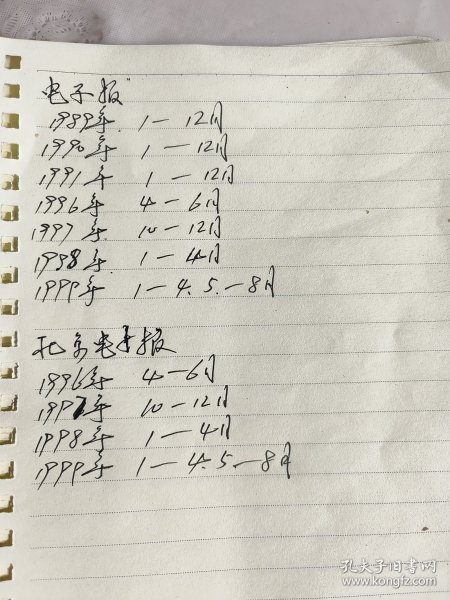 电子报
1989年 1一12月
1990年 1一12月
1991年 1一12月
1996年 4一6月
1997年 10一12月
1998年 1一4月
1999年 1一4.5.一8月
北京电子报
1996年 4一6月
1997年 10一12月
1998年 1一4月
1999年 1一4.5一8月
孔夫子旧书网
www.kongfz.com